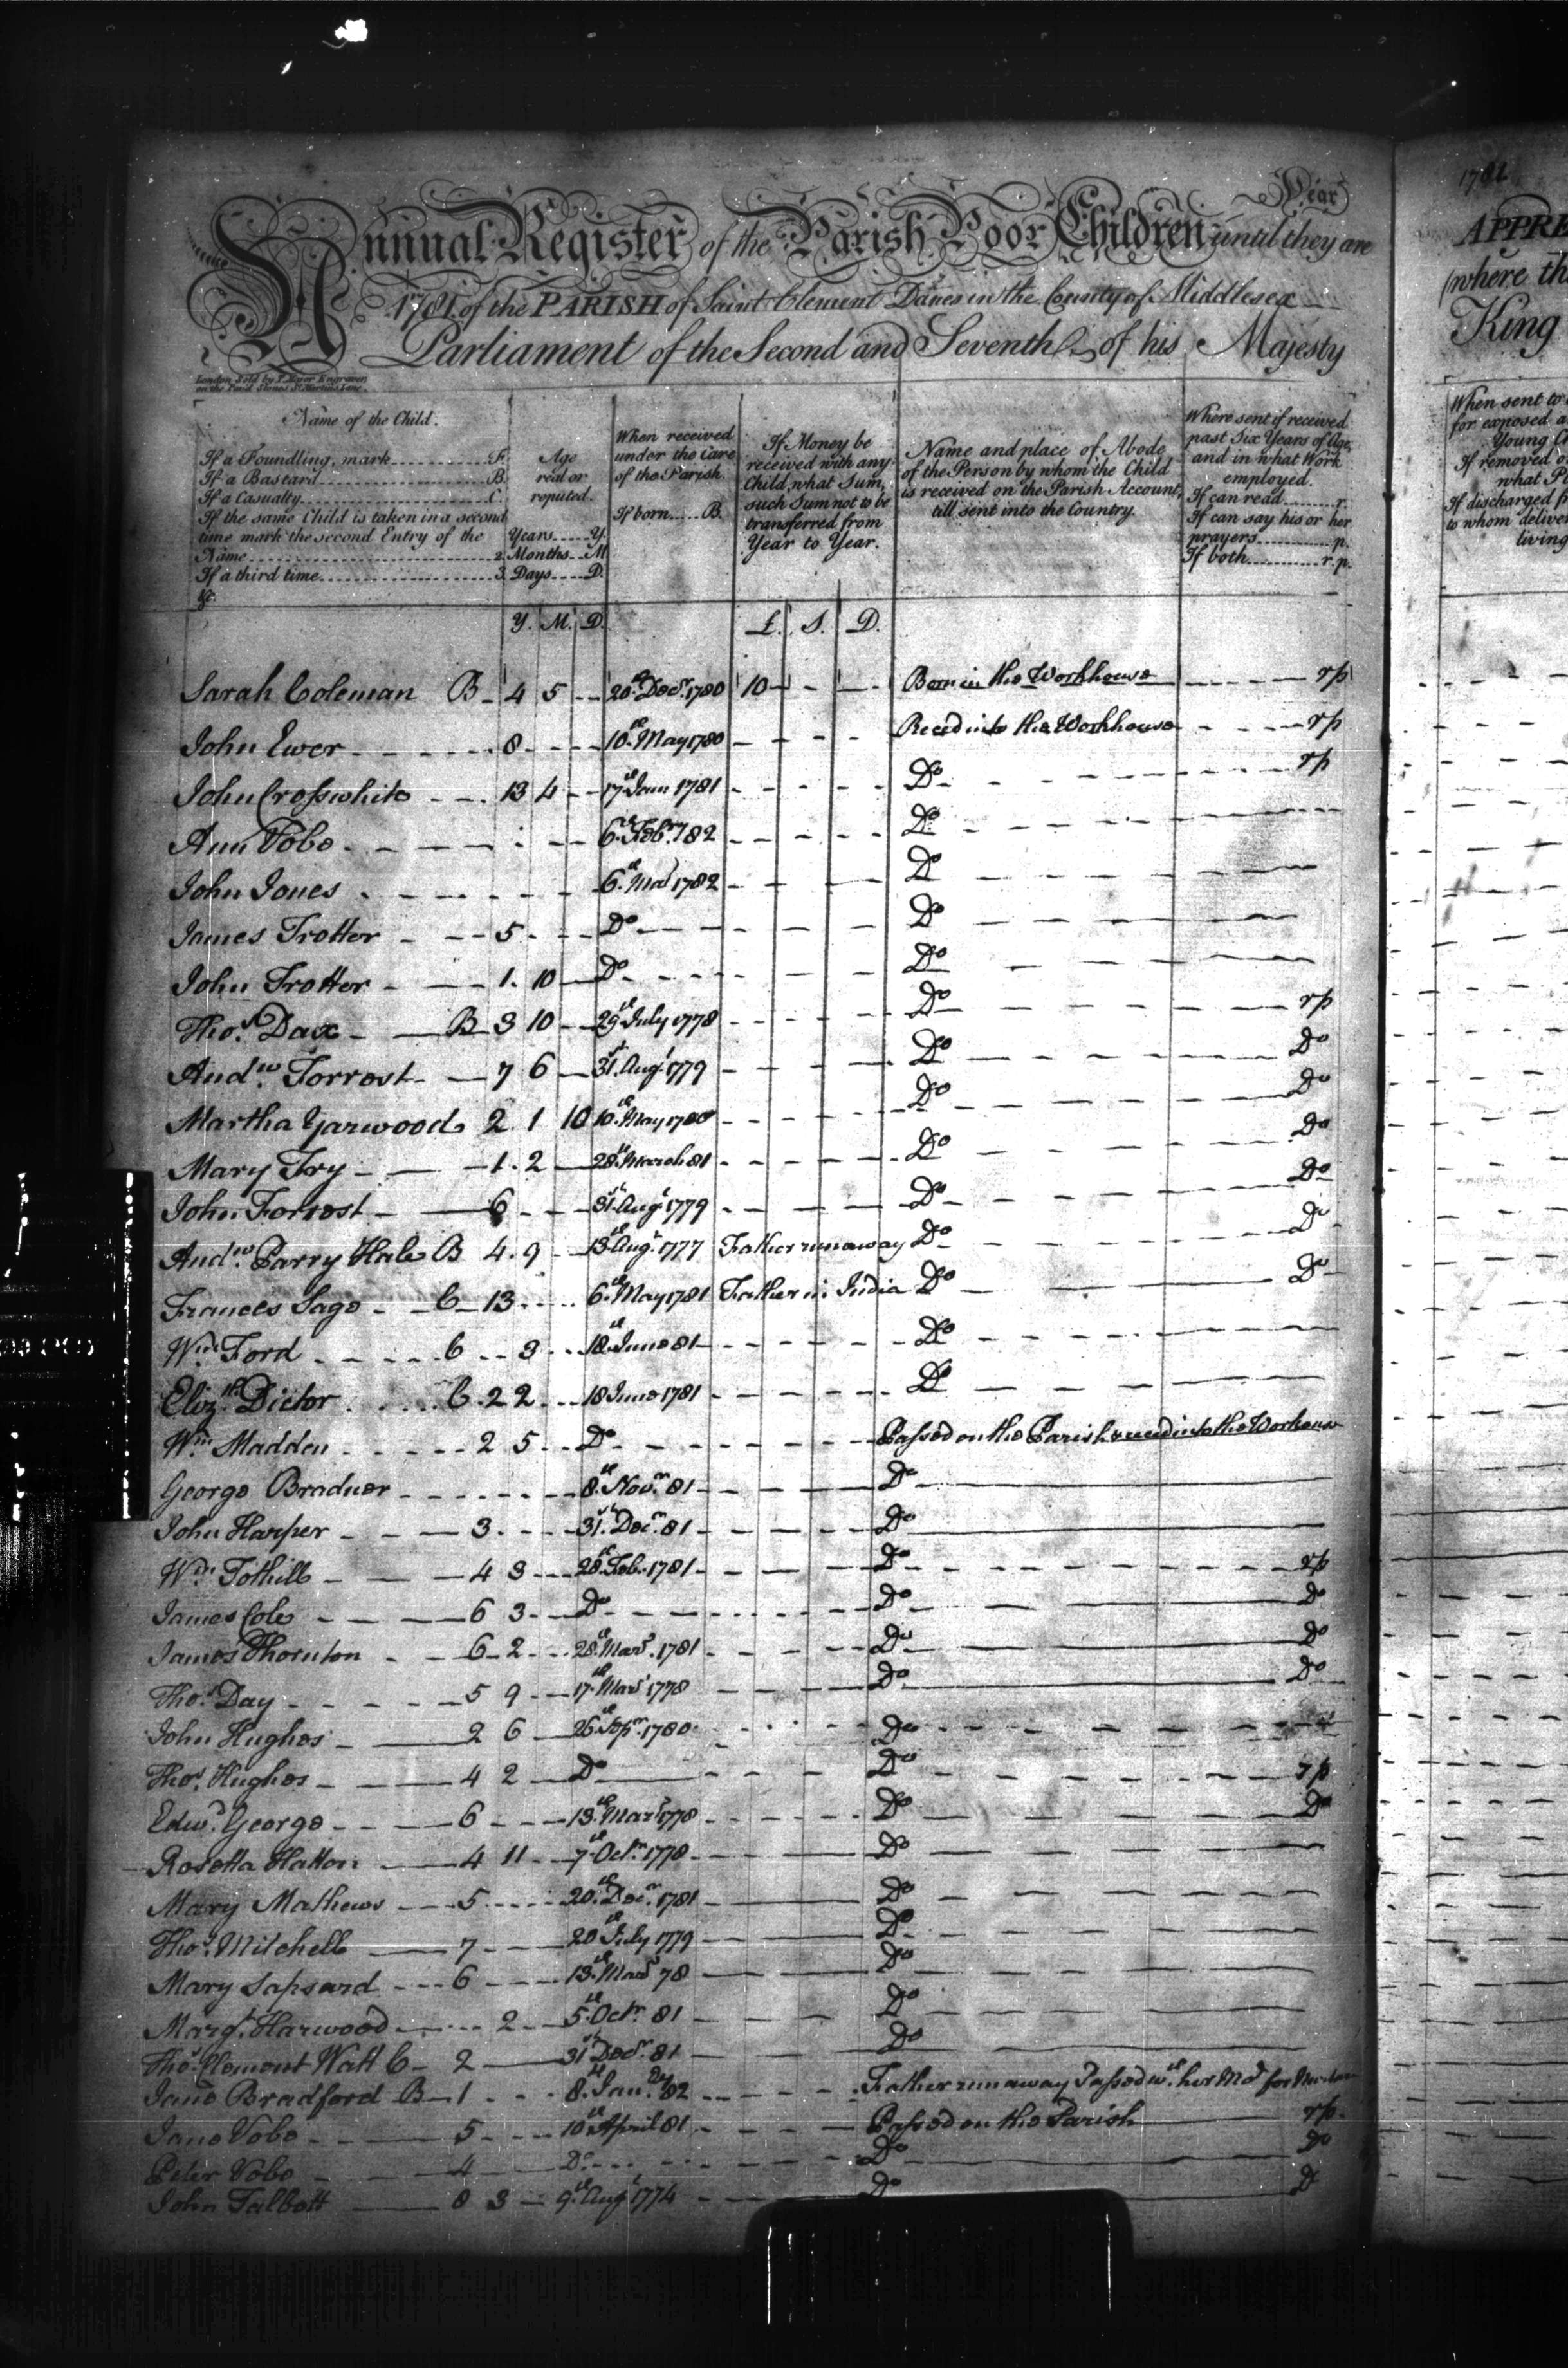 Year
Annual Register of the Parish Poor Children until they are
1781 of the PARISH of Saint Clement Danes in the County of Middlesex
Parliament of the Second and Seventh of his Majesty
London Sold by
Name of the Child.
If a Foundling, mark F.
If a Bastard B.
If a Casualty C.
If the same Child is taken in a second
time mark the second Entry of the
Name 2.
If a third time 3.
&c.
Age
real or
reputed.
Years Y.
Months M.
Days D.
When received
under the Care
of the Parish.
If born B.
If Money be
received with any
Child, what Sum,
such Sum not to be
transferred from
Year to Year.
Name and place of Abode
of the Person by whom the Child
is received on the Parish Account,
till sent into the Country.
Where sent if received
past Six Years of Age,
and in what Work
employed.
If can read r.
If can say his or her
prayers p.
If both r.p.
Y. M. D. £. S. D.
Sarah Coleman B 4 5 20th Decr. 1780 10 Born in the Workhouse rp
John Ewer 8 10th May 1780 Reced into the Workhouse rp
John Crosswhite 13 4 17th Janu 1781 Do rp
Ann Vobe 6th Febr. 1782 Do
John Jones 6th Mar 1782 Do
James Trotter 5 Do Do
John Trotter 1 10 Do Do
Thos. Dax B 3 10 29th July 1778 Do rp
Andw. Forrest 7 6 31st Augt 1779 Do Do
Martha Yarwood 2 1 10 10th May 1780 Do Do
Mary Fry 1 2 28th March 81 Do Do
John Forrest 6 31st Augt 1779 Do Do
Andw. Parry Hale B 4 9 13th Augt. 1777 Father runaway Do Do
Frances Sage C 13 6th May 1781 Father in India Do Do
Wm. Ford C 3 18th June 81 Do
Elizth. Dictor C 2 2 18 June 1781 Do
Wm. Madden 2 5 Do Passed on the Parish & reced into the Workhouse
George Bradner 8th Novr. 81 Do
John Harper 3 31st Decr. 81 Do
Wm. Tothill 4 3 28th Feb. 1781 Do rp
James Cole 6 3 Do Do Do
James Thornton 6 2 28th Mar. 1781 Do Do
Thos. Day 5 9 17th Mar 1778 Do Do
John Hughes 2 6 26th Sepr. 1780 Do
Thos. Hughes 4 2 Do Do rp
Edwd. George 6 13th Mar 1778 Do Do
Rosetta Hatton 4 11 7th Octr. 1778 Do
Mary Mathews 5 20th Decr. 1781 Do
Thos. Mitchell 7 20th July 1779 Do
Mary Sapsard 6 13th Mar 78 Do
Margt. Harwood 2 5th Octr. 81 Do
Thos. Clement Watt C 2 31st Decr. 81 Do
Jane Bradford B 1 8th Janry. 82 Father runaway Passed wth. her Mor for
Jane Vobe 5 10th April 81 Passed on the Parish rp
Peter Vobe 4 Do Do Do
John Talbott 8 3 9th Augt 1774 Do Do
1781
APPRE
(where th
King
When sent to
for exposed a
Young C
If removed o
what P
If discharged f
to whom deliver
living